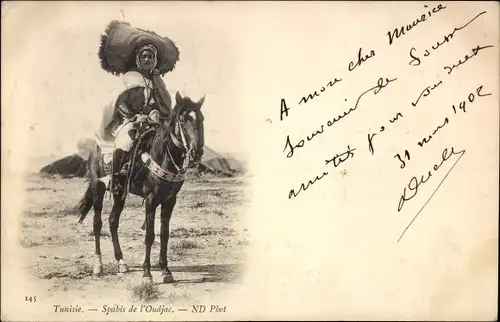 A mon cher Maurice
Souvenir de Sousse
amitiés pour vous
31 mars 1902
145
Tunisie. — Spahis de l'Oudjac. — ND Phot